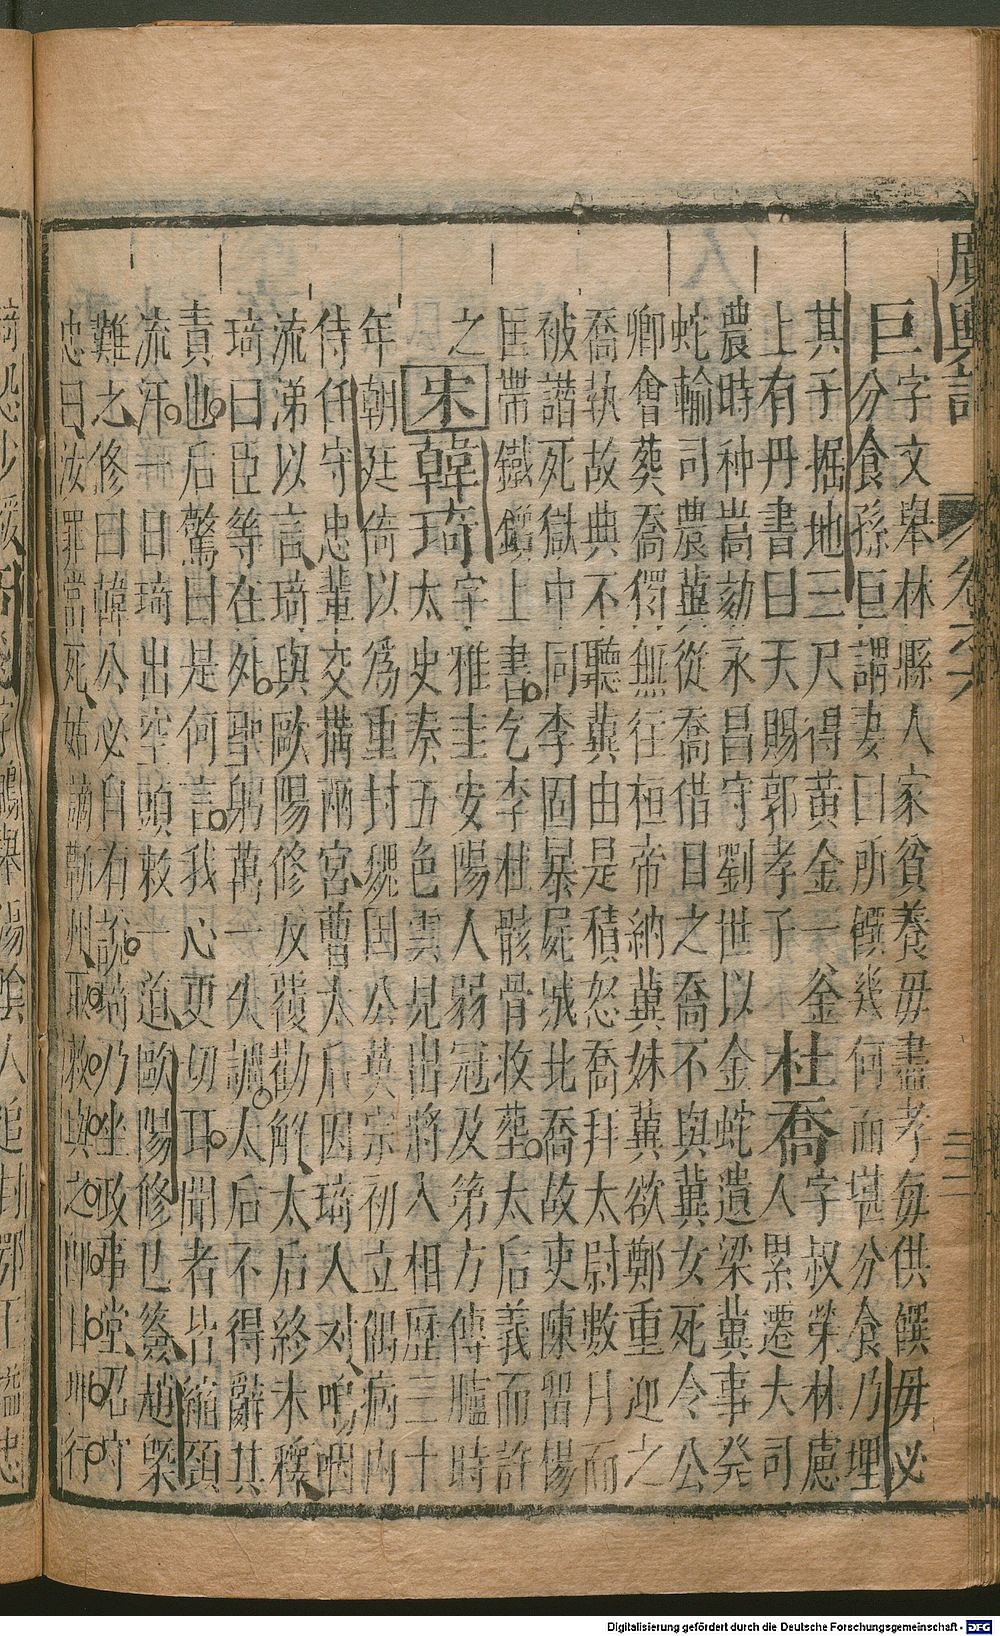 廣輿記
卷之六
巨字文舉林縣人家貧養毋盡孝每供饌毋必
分食孫巨謂妻曰所饌幾何而堪分食乃埋
其子掘地三尺得黃金一釜杜喬字叔榮林慮
上有丹書曰天賜郭孝子人累遷大司
農時种暠劾永昌守劉世以金蛇遺梁冀事発
蛇輸司農冀從喬借目之喬不與冀女死令公
卿會葬喬獨無往桓帝納冀妹冀欲鄭重迎之
喬執故典不聽冀由是積怒喬拜太尉數月而
被譖死獄中同李固暴屍城北喬故吏陳留楊
匡帶鐵鑕上書乞李杜骸骨收葬太后義而許
之宋韓琦字雅圭安陽人弱冠及第方傳臚時
太史奏五色雲見出將入相歷三十
年朝廷倚以為重封魏国公英宗初立偶病內
侍任守忠輩交搆兩宮曹太后因琦入对嗚咽
流涕以言琦與歐陽修反覆勸解太后終未釋
琦曰臣等在外聖躬萬一失調太后不得辭其
責也后驚曰是何言我心更切耳聞者皆縮頚
流汗一日琦出空頭敕一道歐陽修已簽趙槩
難之修曰韓公必自有說琦乃坐政事堂召守
忠曰汝罪當死姑謫蘄州取敕與之即日押行
Digitalisierung gefördert durch die Deutsche Forschungsgemeinschaft - DFG